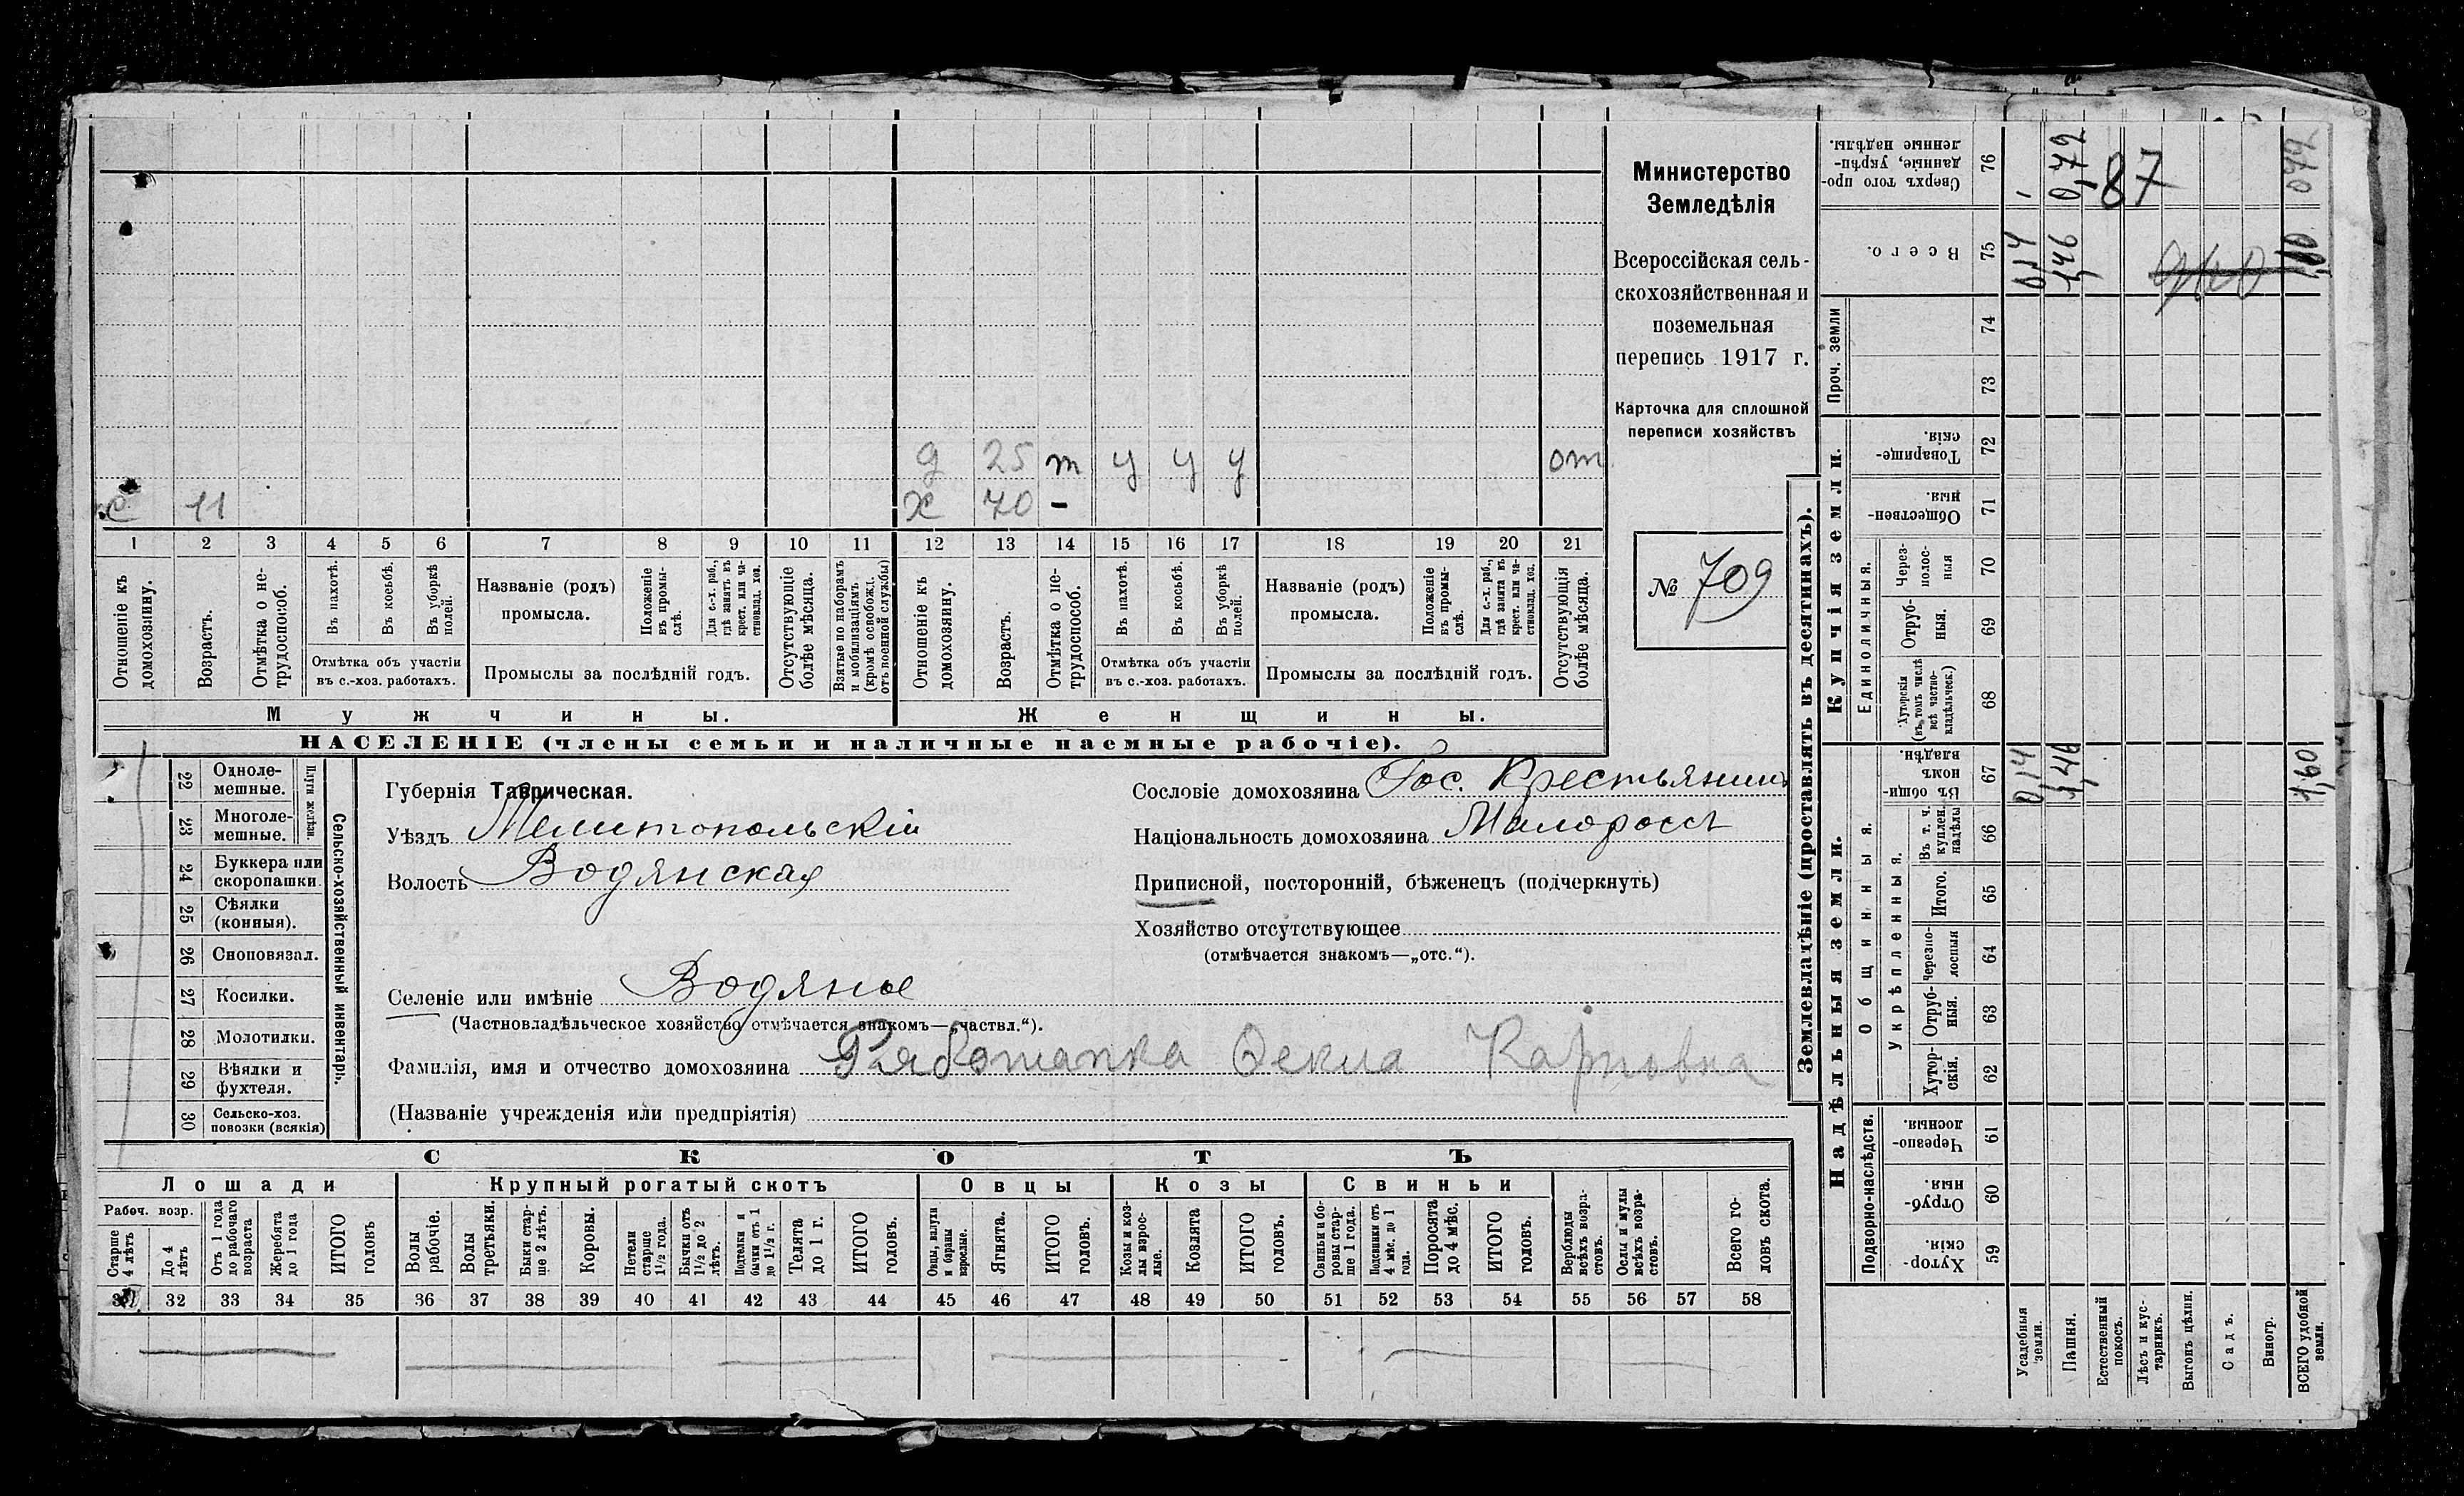 д 25 т у у у от
с 11 х 70 -
1 2 3 4 5 6 7 8 9 10 11 12 13 14 15 16 17 18 19 20 21
Отношеніе къ домохозяину.
Возрастъ.
Отмѣтка о нетрудоспособ.
Въ пахотѣ.
Въ косьбѣ.
Въ уборкѣ полей.
Отмѣтка объ участіи
въ с.-хоз. работахъ.
Названіе (родъ)
промысла.
Положеніе
въ промы-
слѣ.
Для с.-х. раб.,
гдѣ занятъ въ
крест. или ча-
стновлад. хоз.
Промыслы за послѣдній годъ.
Отсутствующіе
болѣе мѣсяца.
Взятые по наборамъ
и мобилизаціямъ.
(кромѣ освобожд.
отъ военной службы)
Отношеніе къ
домохозяину.
Возрастъ.
Отмѣтка о не-
трудоспособ.
Въ пахотѣ.
Въ косьбѣ.
Въ уборкѣ
полей.
Отмѣтка объ участіи
въ с.-хоз. работахъ.
Названіе (родъ)
промысла.
Положеніе
въ промы-
слѣ.
Для с.-х. раб.,
гдѣ занята въ
крест. или ча-
стновлад. хоз.
Промыслы за послѣдній годъ.
Отсутствующія
болѣе мѣсяца.
Мужчины.
Женщины.
НАСЕЛЕНІЕ (члены семьи и наличные наемные рабочіе).
Министерство
Земледѣлія
Всероссійская сель-
скохозяйственная и
поземельная
перепись 1917 г.
Карточка для сплошной
переписи хозяйствъ
№ 709
22 Одноле-
мешные.
23 Многоле-
мешные.
Плуги желѣзн.
24 Буккера или
скоропашки.
25 Сѣялки
(конныя).
26 Сноповязал.
27 Косилки.
28 Молотилки.
29 Вѣялки и
фухтеля.
30 Сельско-хоз.
повозки (всякія)
Сельско-хозяйственный инвентарь.
Губернія Таврическая.
Уѣздъ Мелитопольскій
Волость Водянская
Селеніе или имѣніе Водяное
(Частновладѣльческое хозяйство отмѣчается знакомъ—„частвл.“).
Фамилія, имя и отчество домохозяина Рябошапка Фекла Карповна
(Названіе учрежденія или предпріятія)
Сословіе домохозяина Гос. Крестьянинъ
Національность домохозяина Малороссъ
Приписной, посторонній, бѣженецъ (подчеркнуть)
Хозяйство отсутствующее
(отмѣчается знакомъ—„отс.“).
СКОТЪ
Лошади
Крупный рогатый скотъ
Овцы
Козы
Свиньи
Рабоч. возр.
Старше
4 лѣтъ
До 4
лѣтъ
Отъ 1 года
до рабочаго
возраста
Жеребята
до 1 года
ИТОГО
головъ
Волы
рабочіе.
Волы
третьяки.
Быки стар-
ше 2 лѣтъ.
Коровы.
Нетели
старше
1½ года.
Бычки отъ
1½ до 2
лѣтъ.
Подтелки и
бычки отъ 1
до 1½ г.
Телята
до 1 г.
ИТОГО
головъ.
Овцы, валухи
и бараны
взрослые.
Ягнята.
ИТОГО
головъ.
Козы и коз-
лы взрос-
лые.
Козлята
ИТОГО
головъ.
Свиньи и бо-
ровы стар-
ше 1 года.
Подсвинки отъ
4 мѣс. до 1
года.
Поросята
до 4 мѣс.
ИТОГО
головъ.
Верблюды
всѣхъ возра-
стовъ.
Ослы и мулы
всѣхъ возра-
стовъ.
Всего го-
ловъ скота.
31 32 33 34 35 36 37 38 39 40 41 42 43 44 45 46 47 48 49 50 51 52 53 54 55 56 57 58
Землевладѣніе (проставлять въ десятинахъ).
Надѣльныя земли.
Купчія земли.
Проч. земли
Подворно-наслѣдств.
Общинныя.
Укрѣпленныя.
Единоличныя.
Сверхъ того про-
данные, укрѣп-
ленные надѣлы.
76 0,72 87 072
Всего.
75 0,14 1,46 1,60
74
73
Товарище-
скія.
72
Обществен-
ныя.
71
Через-
полос-
ныя
70
Отруб-
ныя.
69
Хуторскія
(въ томъ числѣ
всѣ частно-
владѣльческ.)
68
Въ общи-
номъ
владѣн.
67 0,14 1,46 1,60
Въ т. ч.
куплен.
надѣлы
66
Итого.
65
Черезпо-
лосныя
64
Отруб-
ныя.
63
Хутор-
скія.
62
Черезпо-
лосныя.
61
Отруб-
ныя.
60
Хутор-
скія.
59
Усадебныя
земли.
Пашня.
Естественный
покосъ.
Лѣсъ и кус-
тарникъ.
Выгонъ цѣлин.
Садъ.
Виногр.
ВСЕГО удобной
земли.